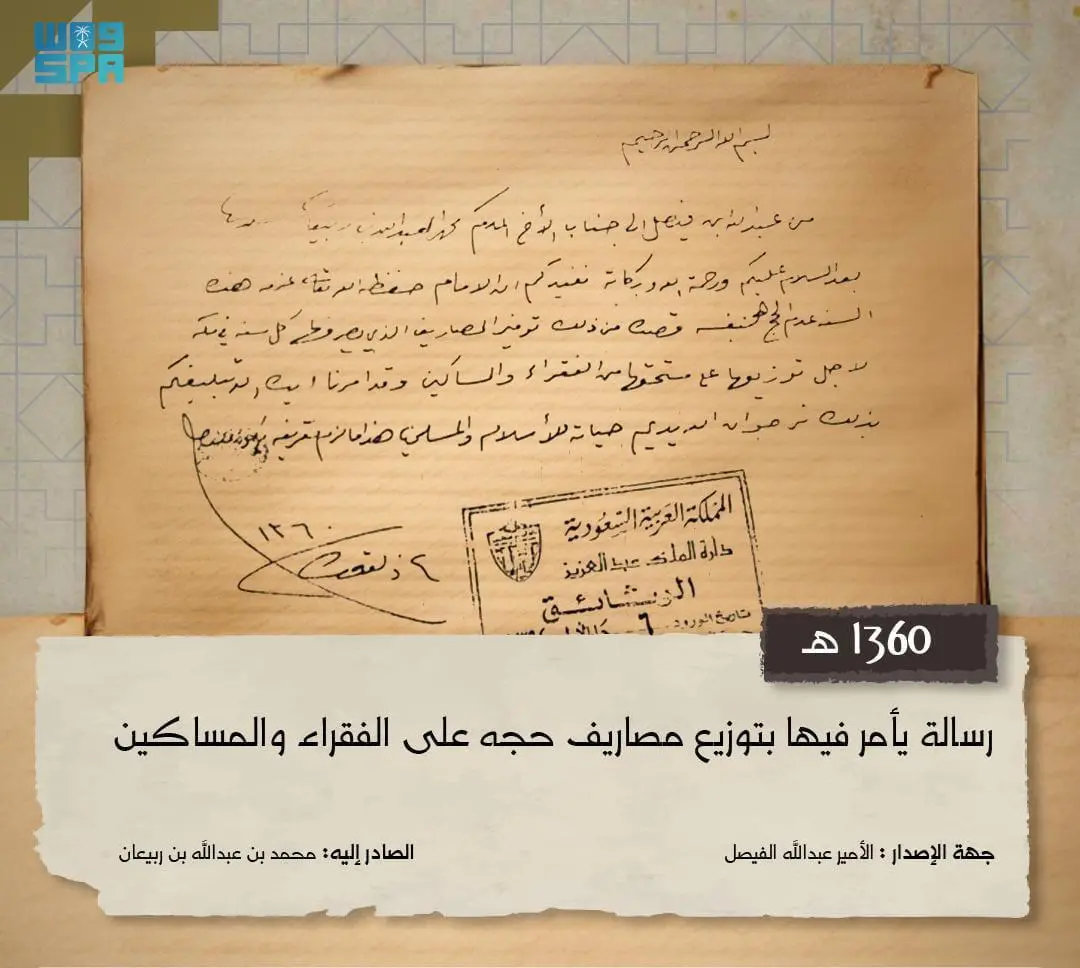 واس
SPA
بسم الله الرحمن الرحيم
من عبدالله ابن فيصل الى جناب الأخ المكرم محمد العبدالله بن ربيعان
بعد السلام عليكم ورحمة الله وبركاته نفيدكم ان الامام حفظه الله تعالى عزمه هذه
السنه عدم الحج بنفسه قصده من ذلك توفير المصاريف الذي يصرفها كل سنه في مكه
لاجل توزيعها على مستحقها من الفقراء والمساكين وقد امرنا ايده الله تبليغكم
بذلك نرجو ان الله يديم حياته للأسلام والمسلمين هذا مالزم تعريفه
١٣٦٠
٢ ذلقعده
المملكة العربية السعودية
دارة الملك عبد العزيز
الوثائق
تاريخ الورود ٦
1360 هـ
رسالة يأمر فيها بتوزيع مصاريف حجه على الفقراء والمساكين
جهة الإصدار : الأمير عبدالله الفيصل
الصادر إليه: محمد بن عبدالله بن ربيعان